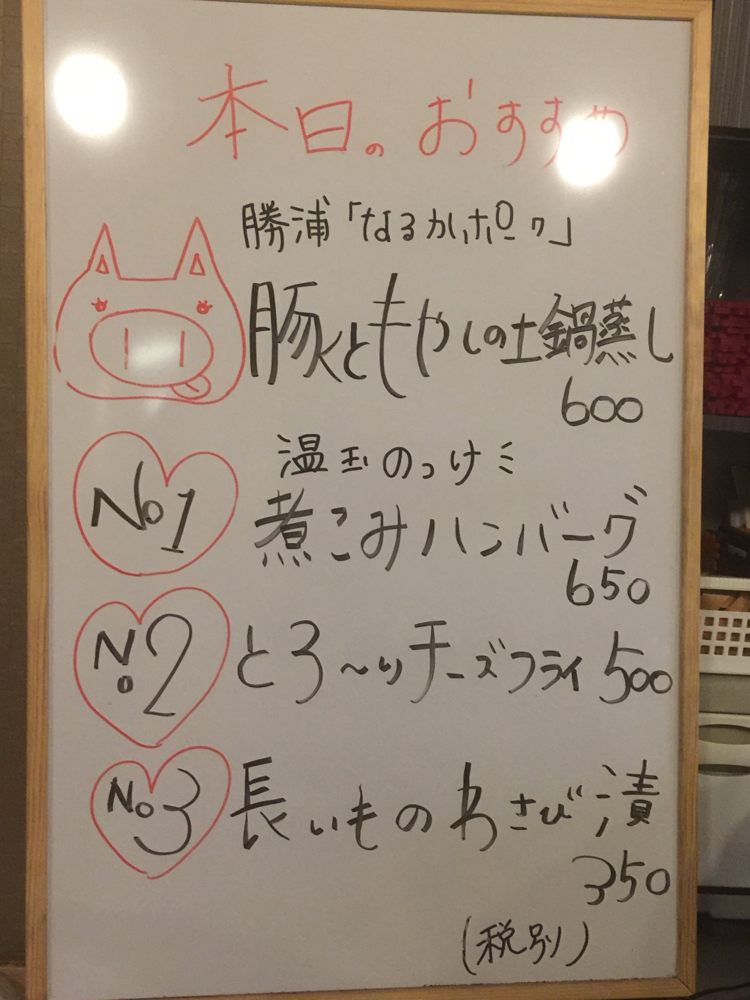 本日のおすすめ
勝浦「なるかポーク」
豚ともやしの土鍋蒸し
600
温玉のっけミ
No1
煮こみハンバーグ
650
No2
とろ〜りチーズフライ 500
No3
長いものわさび漬
350
(税別)